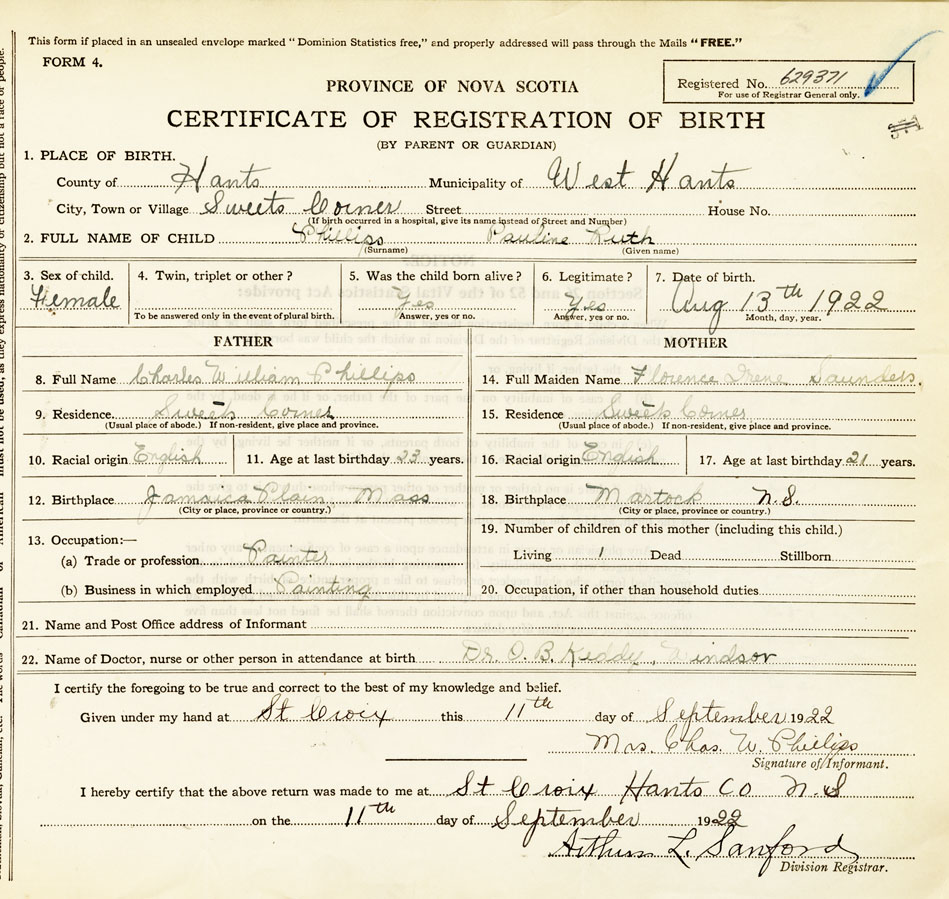 This form if placed in an unsealed envelope marked "Dominion Statistics free," and properly addressed will pass through the Mails "FREE."
FORM 4.
Registered No. 629371
For use of Registrar General only.
PROVINCE OF NOVA SCOTIA
CERTIFICATE OF REGISTRATION OF BIRTH
(BY PARENT OR GUARDIAN)
1. PLACE OF BIRTH.
County of Hants Municipality of West Hants
City, Town or Village Sweets Corner Street House No.
(If birth occurred in a hospital, give its name instead of Street and Number)
2. FULL NAME OF CHILD Phillips Pauline Ruth
(Surname) (Given name)
3. Sex of child. 4. Twin, triplet or other? 5. Was the child born alive? 6. Legitimate? 7. Date of birth.
Female Yes Yes Aug 13th 1922
To be answered only in the event of plural birth. Answer, yes or no. Answer, yes or no. Month, day, year.
FATHER MOTHER
8. Full Name Charles William Phillips 14. Full Maiden Name Florence Irene Saunders.
9. Residence. Sweets Corner 15. Residence Sweets Corner
(Usual place of abode.) If non-resident, give place and province. (Usual place of abode.) If non-resident, give place and province.
10. Racial origin English 11. Age at last birthday 23 years. 16. Racial origin English 17. Age at last birthday 21 years.
12. Birthplace Jamaica Plain Mass 18. Birthplace Martock N.S.
(City or place, province or country.) (City or place, province or country.)
13. Occupation:— 19. Number of children of this mother (including this child.)
(a) Trade or profession Painter Living 1 Dead Stillborn
(b) Business in which employed Painting 20. Occupation, if other than household duties
21. Name and Post Office address of Informant
22. Name of Doctor, nurse or other person in attendance at birth Dr. O. B. Keddy, Windsor
I certify the foregoing to be true and correct to the best of my knowledge and belief.
Given under my hand at St Croix this 11th day of September 1922
Mrs. Chas. W. Phillips
Signature of Informant.
I hereby certify that the above return was made to me at St Croix Hants Co N.S
on the 11th day of September 1922
Arthur L. Sanford
Division Registrar.